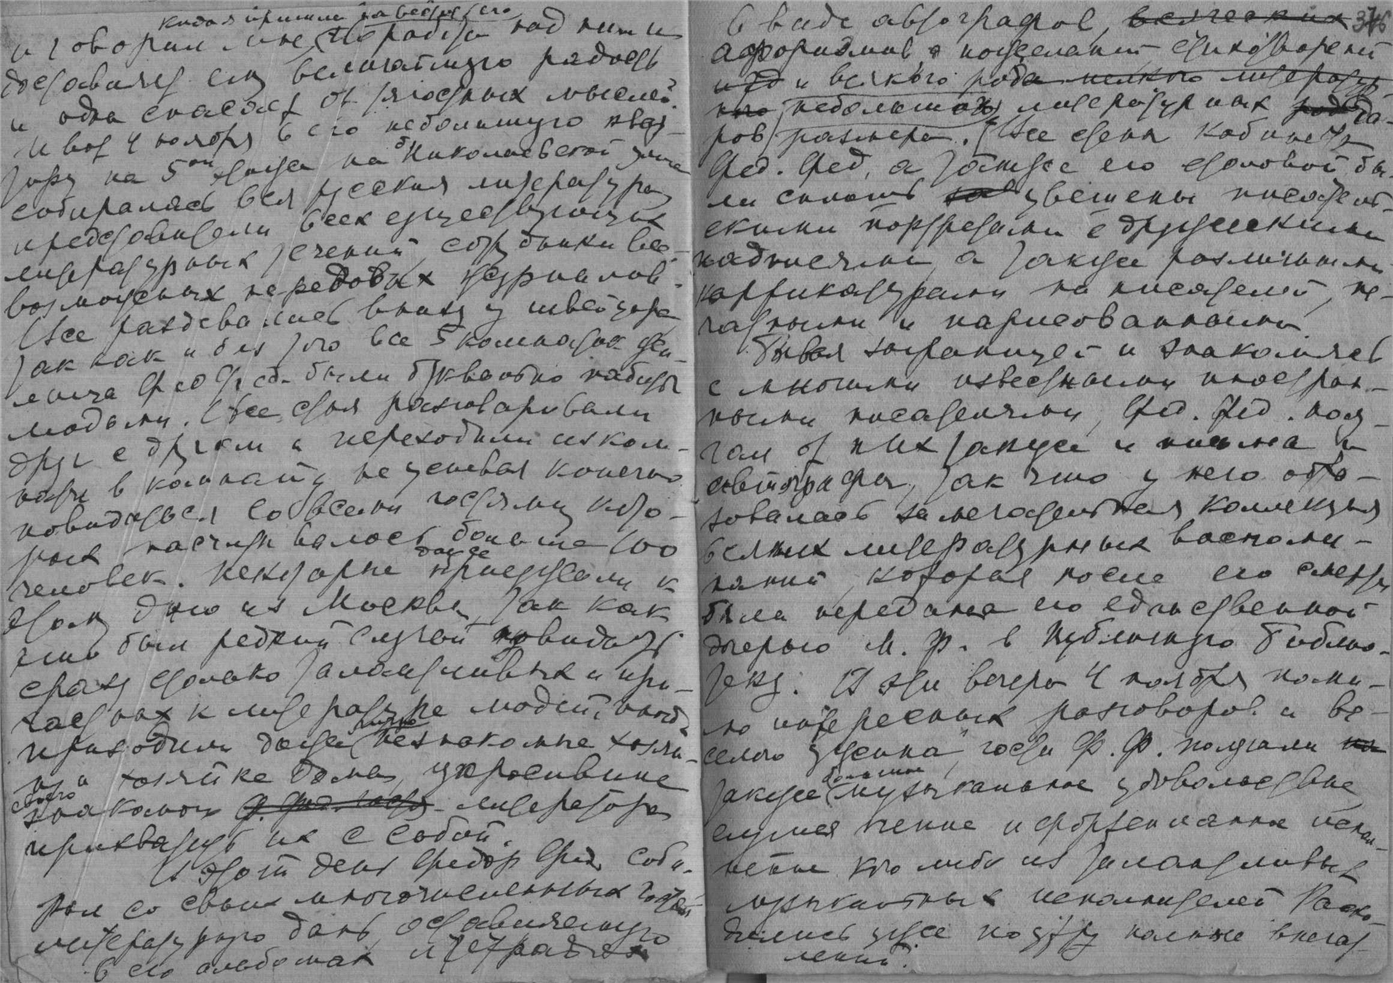 когда пришли на вечер к его
и говорил мне, что работа над ними
доставляет ему величайшую радость
и одна спасает от тягостных мыслей.
И вот 4 ноября в его небольшую квар-
тиру на 5ом этаже на Николаевской улице
собиралась вся русская литература,
представители всех существующих
литературных течений, сотрудники все-
возможных передовых журналов.
Все раздевались внизу у швейцара,
так как и без того все 5 комнаток
Фед. Фед. были буквально набиты
людьми. Все стоя разговаривали
друг с другом и переходили из ком-
наты в комнату не успевая конечно
повидаться со всеми гостями, кото-
рых насчитывалось больше 100
человек. Некоторые даже приезжали к
этому дню из Москвы, так как
это был редкий случай повидать
сразу столько талантливых и при-
частных к литературе людей; иногда
приходили даже лично незнакомые хозяи-
ну и хозяйке дома, упросившие
своего
знакомого литератора
прихватить их с собой.
В этот день Федор Фед. соби-
рал со своих многочисленных гостей
литературную дань оставляемую
в его альбомах и тетрадях
376
в виде автографов, всяческих
афоризмов, пожеланий стихотворений
и всякого рода мелкого литератур-
ного небольших литературных да-
ров размера. Все стены кабинета
Фед. Фед., а также его столовой бы-
ли сплошь увешены писатель-
скими портретами с дружескими
надписями, а также различными
карикатурами на писателей, пе-
чатными и нарисованными.
Бывая заграницей и знакомясь
с многими известными иностран-
ными писателями, Фед. Фед. полу-
чал от них также и письма и
автографы, так что у него обра-
зовалась замечательная коллекция
всяких литературных воспоми-
наний, которая после его смерти
была передана его единственной
дочерью М. Ф. в Публичную Библио-
теку. В эти вечера 4 ноября поми-
мо интересных разговоров и ве-
селого ужина, гости Ф. Ф. получали
также большое музыкальное удовольствие
слушая пение и фортепианное испол-
нение кого либо из талантливых
музыкантных исполнителей. Расхо-
дились уже поутру полные впечат-
лений.